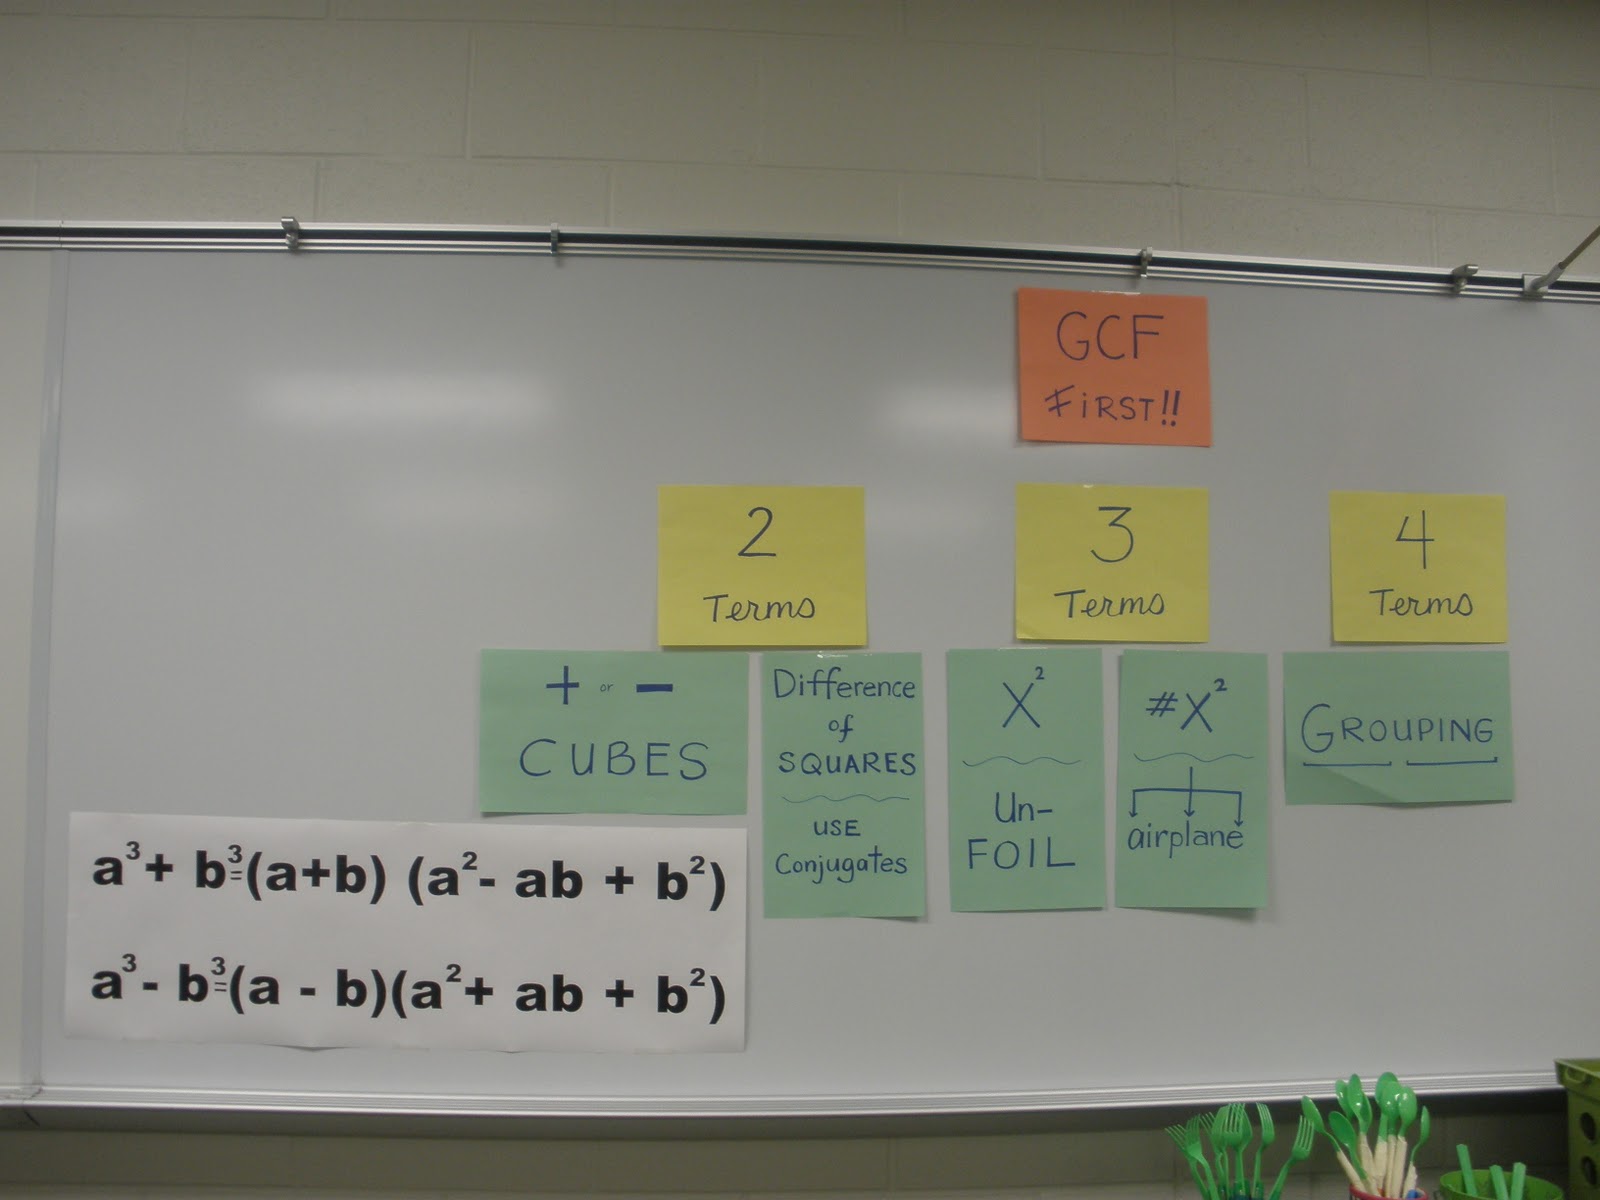 GCF
FiRST!!
2
Terms
3
Terms
4
Terms
+ or −
CUBES
Difference
of
SQUARES
USE
Conjugates
X²
Un-
FOIL
#X²
airplane
GROUPING
a³+ b³=(a+b) (a²- ab + b²)
a³- b³=(a - b)(a²+ ab + b²)